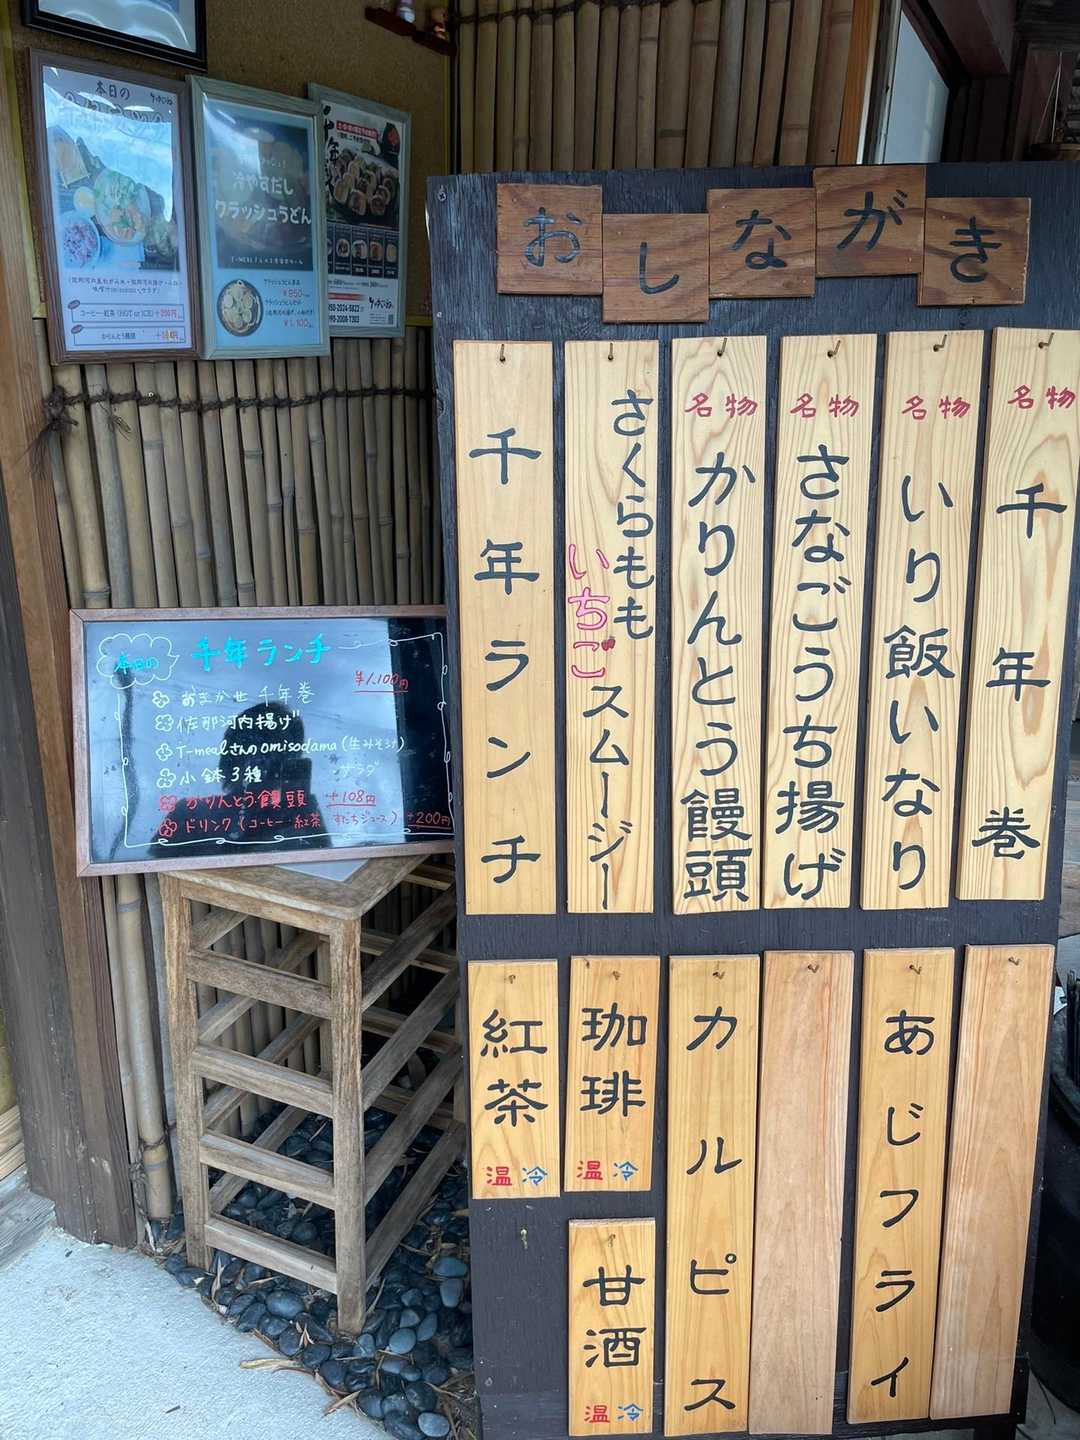 おしながき
名物 千年巻
名物 いり飯いなり
名物 さなごうち揚げ
名物 かりんとう饅頭
さくらもも
いちご
スムージー
千年ランチ
あじフライ
カルピス
珈琲 温 冷
紅茶 温 冷
甘酒 温 冷
本日の 千年ランチ
¥1,100円
おまかせ 千年巻
佐那河内揚げ
T-mealさんのomisodama(生みそ汁)
小鉢3種 サラダ
かりんとう饅頭 +108円
ドリンク(コーヒー・紅茶 すだちジュース) +200円
本日の
コーヒー・紅茶(HOT or ICE)+200円
かりんとう饅頭
冷やすだし
クラッシュうどん
¥950
¥1,100
千年巻